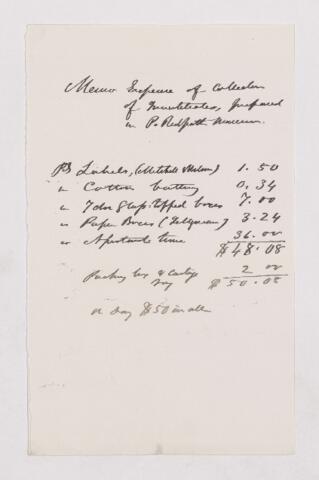 Memo Expense of Collection
of Invertebrates, prepared
in P. Redpath Museum.
Labels, (Mitchell & Wilson) 1.50
" Cotton batting 0.34
" 7 doz glass-topped boxes 7.00
" Paper Boxes 3.24
" Assistants time 36.00
$48.08
Packing box & Cartage 2 00
say $50.08
or say $50 in all